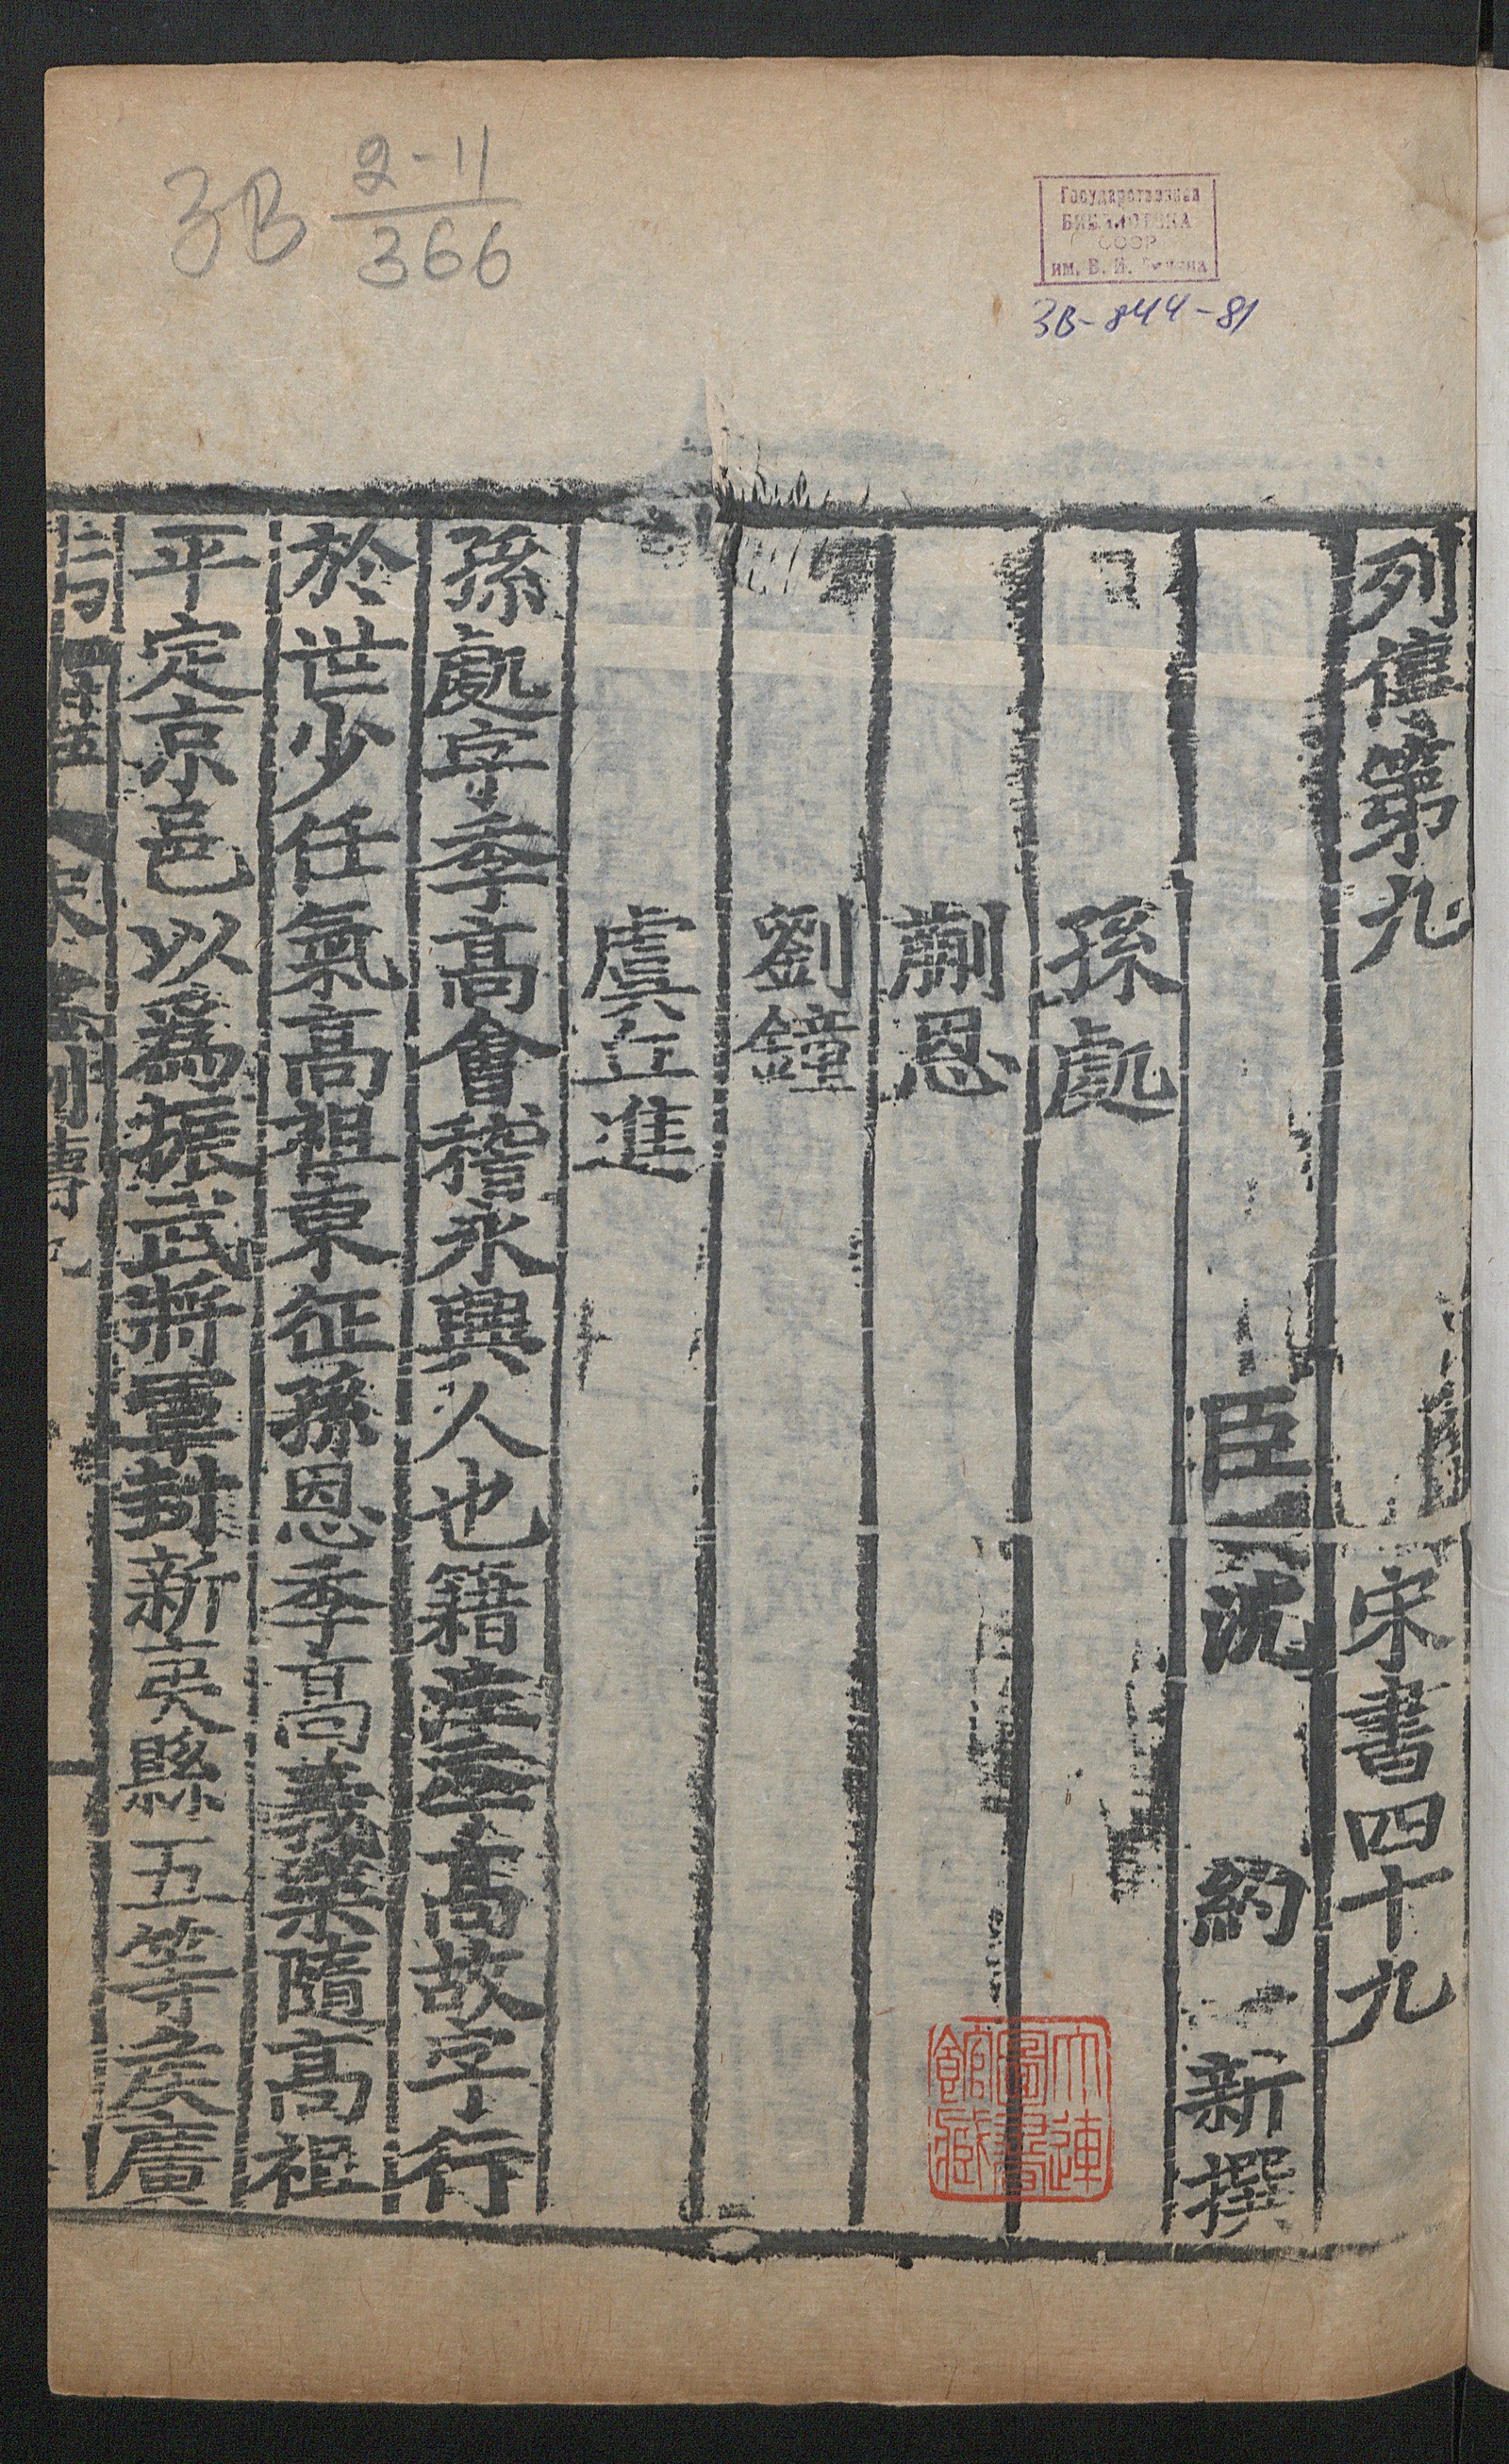 ЗВ 2-11
366
Государственная
БИБЛИОТЕКА
СССР
им. В. И. Ленина
ЗВ-844-81
列傳第九 宋書四十九
臣沈約新撰
孫處
蒯恩
劉鐘
虞丘進
孫處字季高會稽永興人也籍注季高故字行
於世少任氣高祖東征孫恩季高義樂隨高祖
平定京邑以爲振武將軍封新夷縣五等侯廣
列傳
大連
圖書
館藏